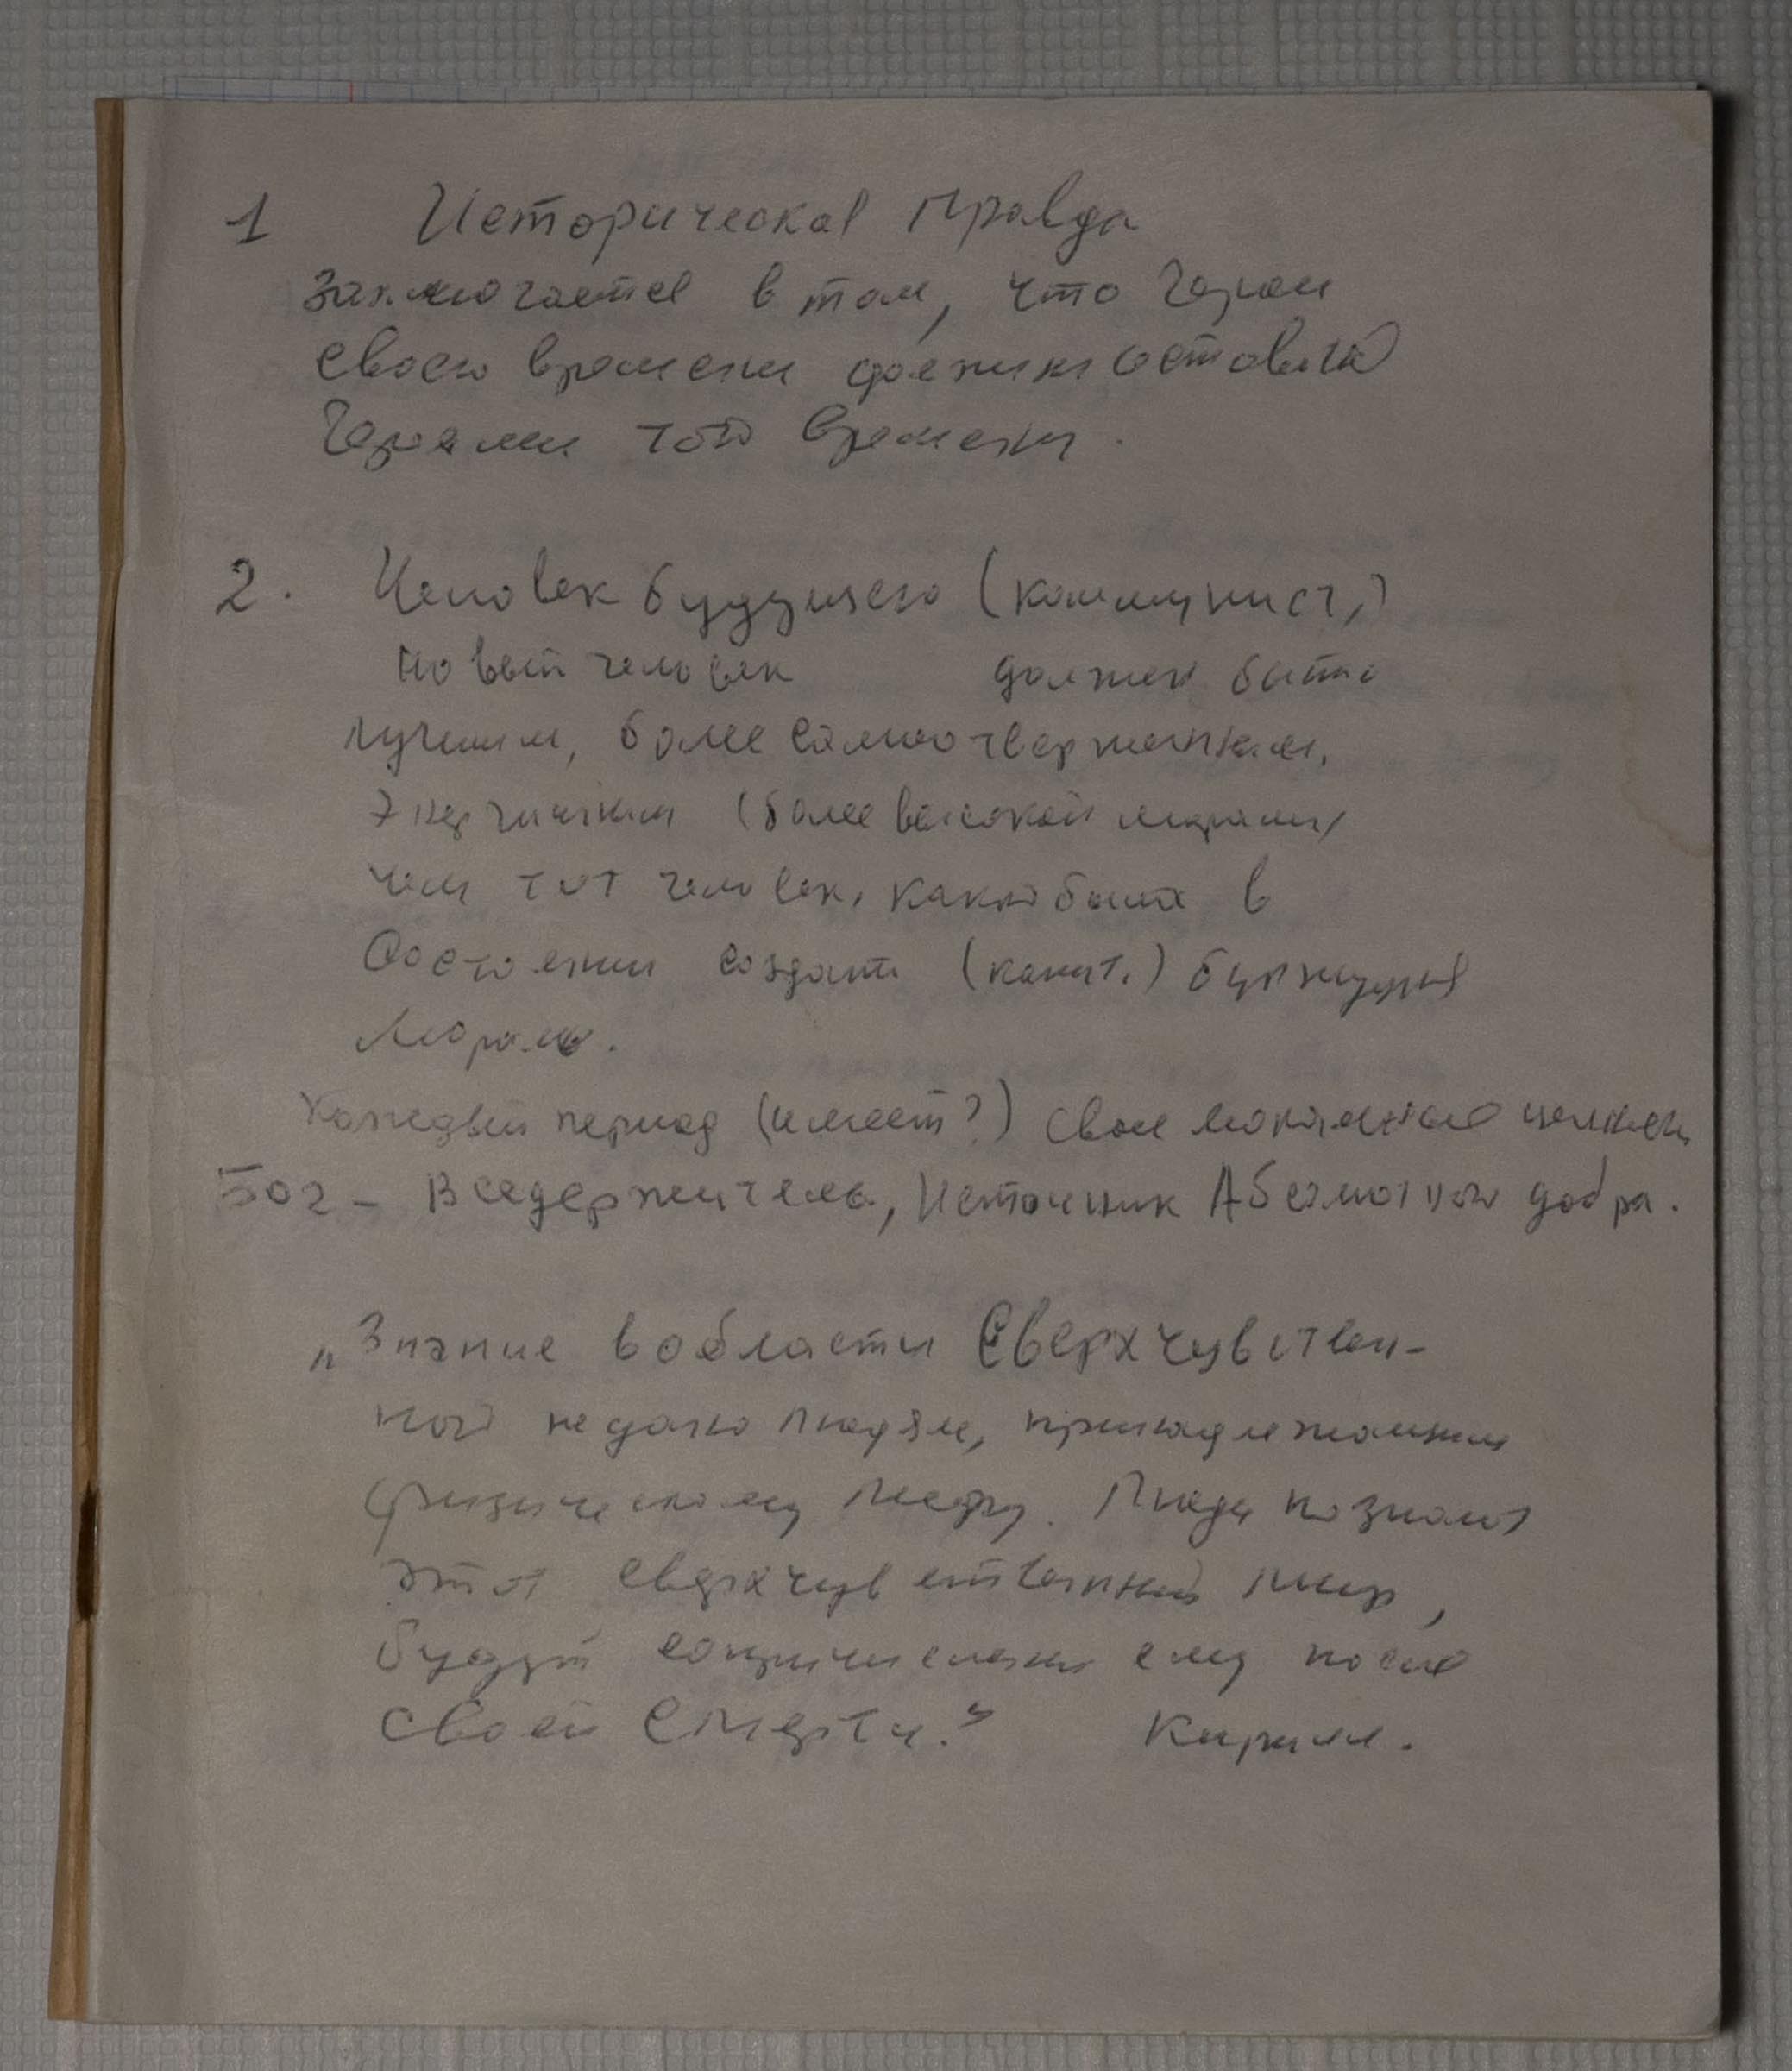 1 Историческая правда
заключается в том, что Герои
своего времени должны оставаться
Героями того времени.
2. Человек будущего (коммунист,)
новый человек должен быть
лучшим, более самоотверженным,
энергичным (более высокой морали)
чем тот человек, какой была в
состоянии создать (капит.) буржуазная
мораль.
Каждый период (имеет?) свои моральные
Бог – Вседержитель, Источник Абсолютного добра.
„Знание в области Сверхчувствен-
ной не дано людям, принадлежащим
физическому миру. Люди познают
этот сверхчувственный мир,
будут сопричислены ему после
своей смерти.“ Кирилл.